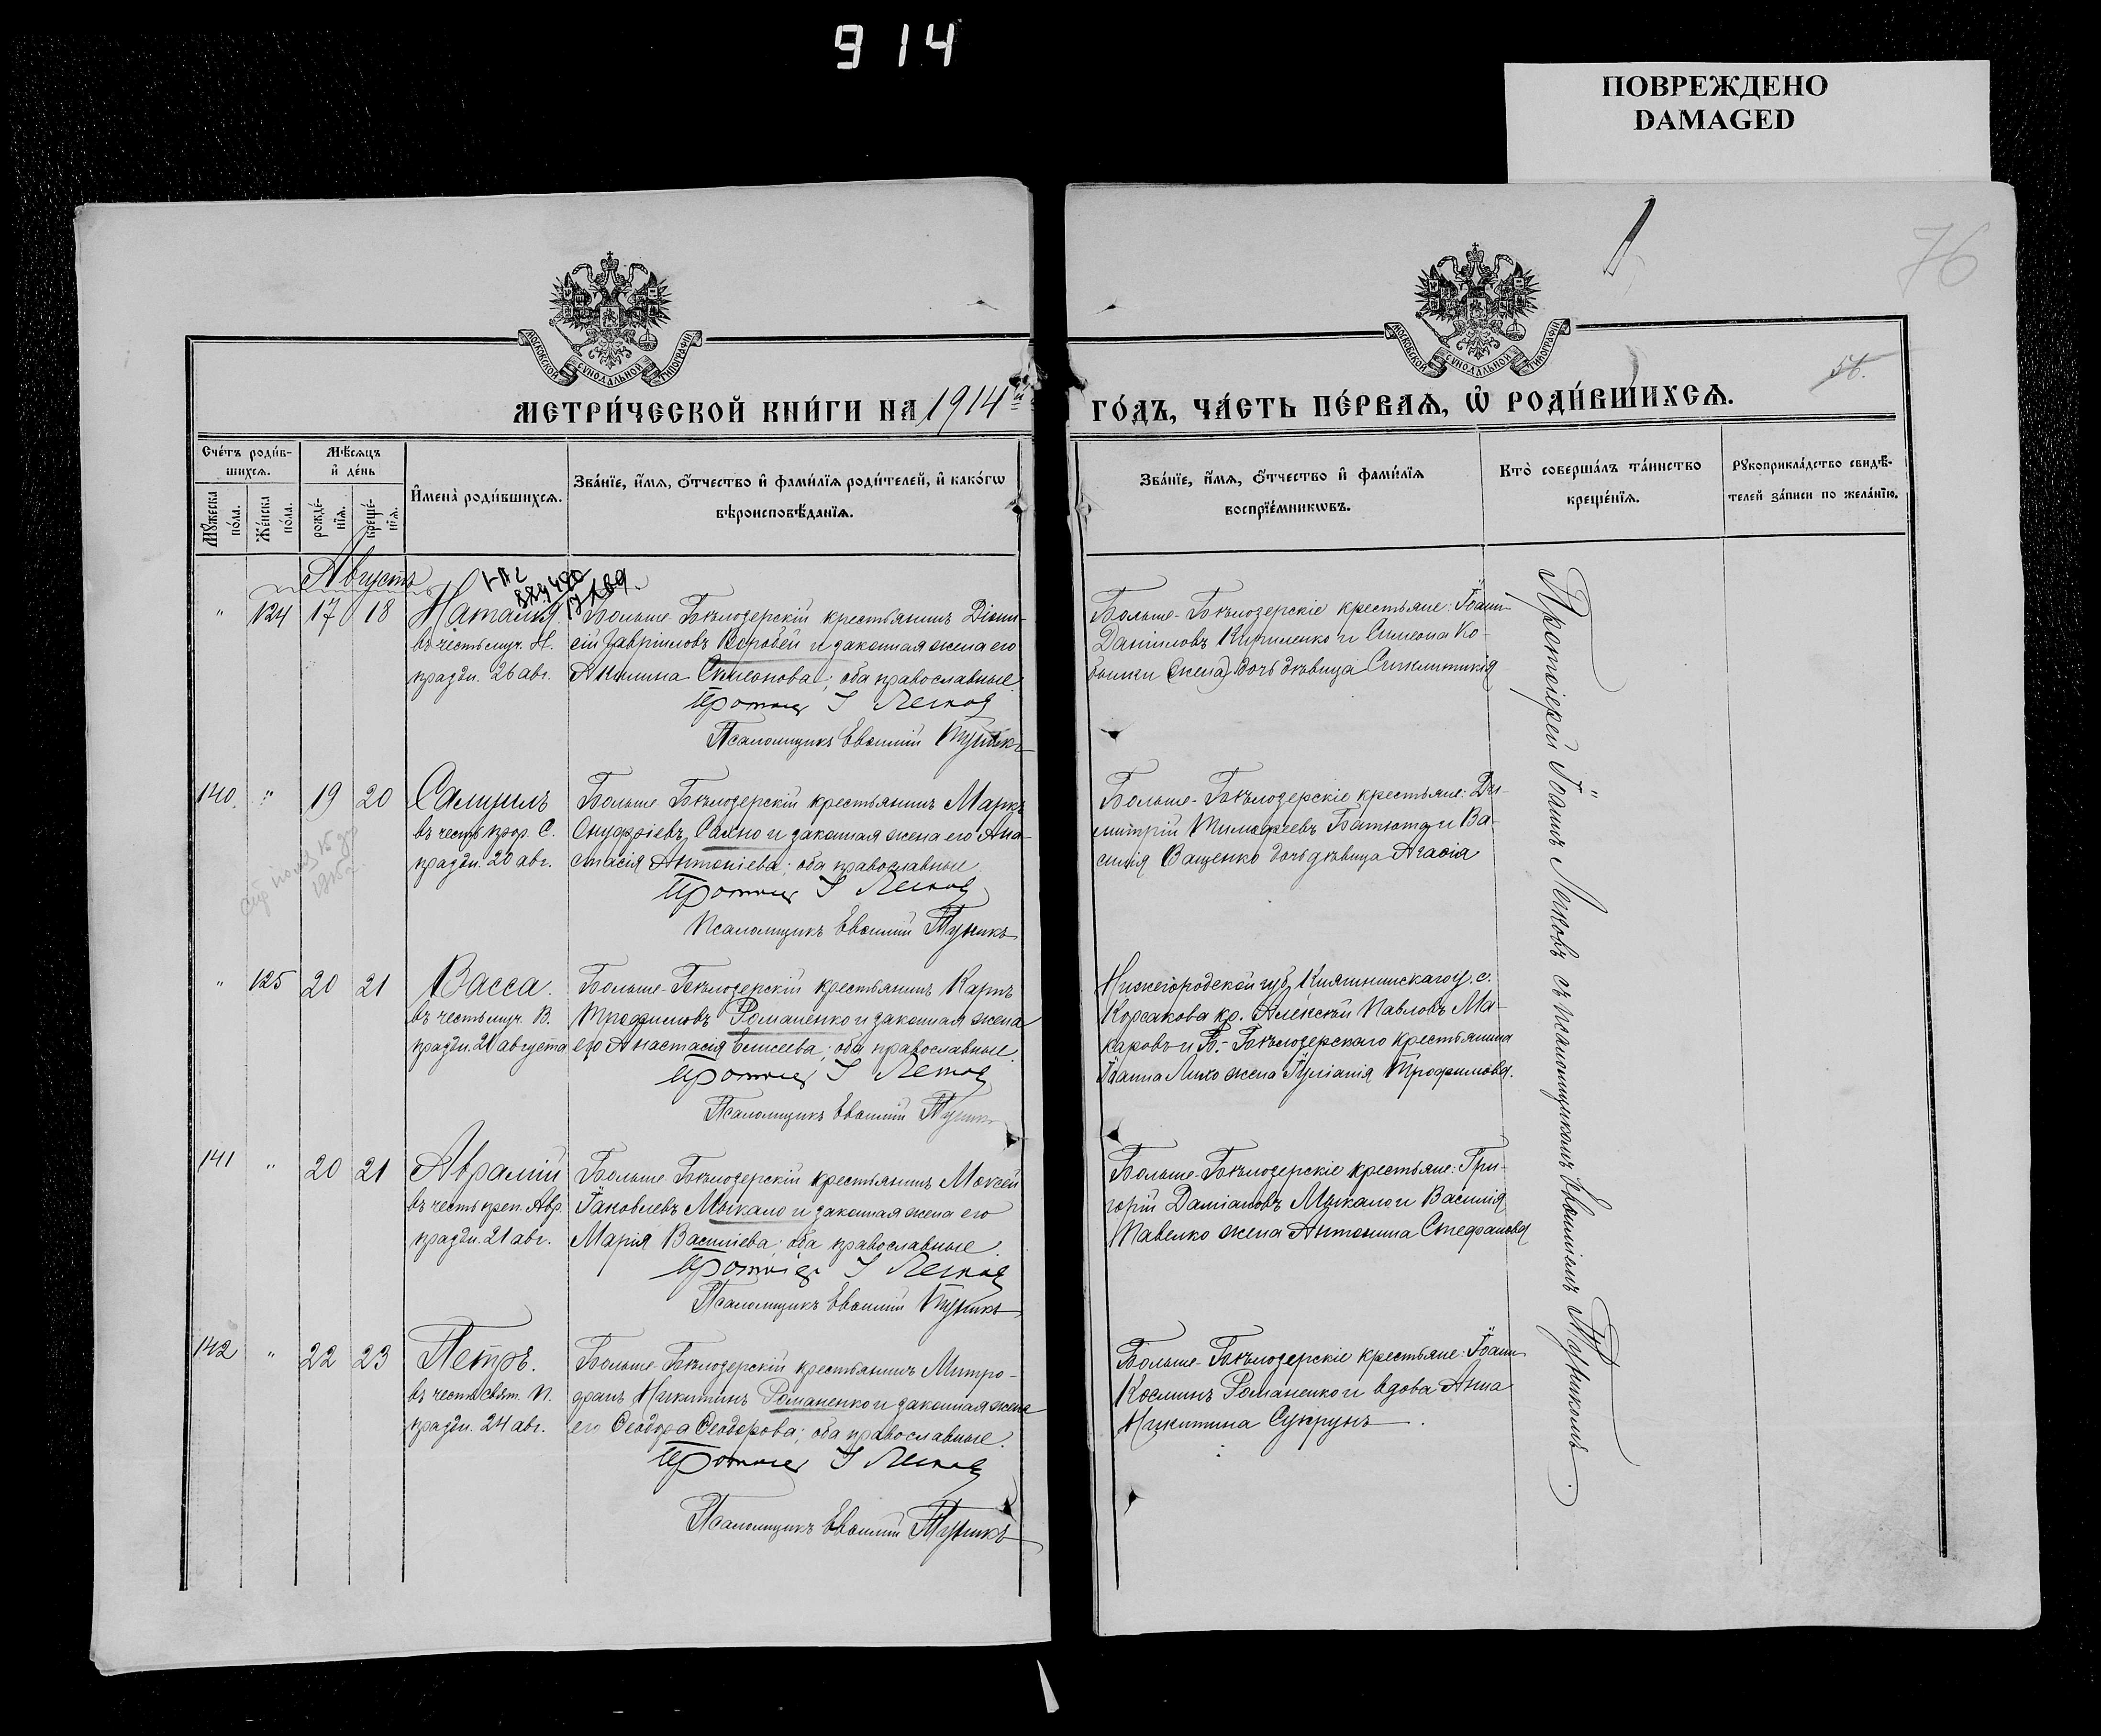 914
ПОВРЕЖДЕНО
DAMAGED
76
МОСКОВСКОЙ СѴНОДАЛЬНОЙ ТИПОГРАФІИ
МОСКОВСКОЙ СѴНОДАЛЬНОЙ ТИПОГРАФІИ
56.
МЕТРИ́ЧЕСКОЙ КНИ́ГИ НА 1914й
ГО́ДЪ, ЧА́СТЬ ПЕ́РВАѦ, Ѡ҆ РОДИ́ВШИХСѦ.
Сче́тъ роди́в-
шихсѧ.
Мѣ́сѧцъ
и҆ де́нь
Мꙋ́жеска
по́ла.
Же́нска
по́ла.
рожде́-
нїѧ.
креще́-
нїѧ.
И҆мена̀ роди́вшихсѧ.
Зва́нїе, и҆́мѧ, ѻ҆́тчество и҆ фами́лїѧ роди́телей, и҆ како́гѡ
вѣроисповѣ́данїѧ.
Зва́нїе, и҆́мѧ, ѻ҆́тчество и҆ фами́лїѧ
воспрїе́мникѡвъ.
Кто̀ соверша́лъ та́инство
креще́нїѧ.
Рꙋкоприкла́дство свидѣ́-
телей за́писи по жела́нїю.
Августъ
" 124 17 18 Наталія
въ честь муч. Н.
праздн. 26 авг.
Больше-Бѣлозерскій крестьянинъ Діони-
сій Гавріиловъ Воробей и законная жена его
Акилина Симеонова; оба православные.
Протоіер І Легков
Псаломщикъ Евѳимій Туникъ
Больше-Бѣлозерскіе крестьяне: Іоаннъ
Даніиловъ Кириленко и Симеона Ко-
былки (жена) дочь дѣвица Синклитикія
140. " 19 20 Самуилъ
въ честь прор. С.
праздн. 20 авг.
Больше-Бѣлозерскій крестьянинъ Маркъ
Онуфріевъ Сахно и законная жена его Ана-
стасія Антоніева; оба православные
Протоіер І Легков
Псаломщикъ Евѳимій Туникъ
Больше-Бѣлозерскіе крестьяне: Ди-
митрій Тимоѳеевъ Батюта и Ва-
силія Ващенко дочь дѣвица Агасія
1915 г
" 125 20 21 Васса.
въ честь муч. В.
праздн. 21 августа
Больше-Бѣлозерскій крестьянинъ Карпъ
Трофимовъ Романенко и законная жена
его Анастасія Елисеева; оба православные.
Протоіер І Легков
Псаломщикъ Евѳимій Туникъ
Нижегородской губ. Княгининскаго у. с.
Корсакова кр. Алексѣй Павловъ Ма-
каровъ и Б.-Бѣлозерскаго крестьянина
Іоанна Лихо жена Іуліанія Трофимова.
141 " 20 21 Аврамій
въ честь преп. Авр.
праздн. 21 авг.
Больше-Бѣлозерскій крестьянинъ Моѵсей
Іаковлевъ Мыкало и законная жена его
Марія Василіева; оба православные.
Протоіер І Легков
Псаломщикъ Евѳимій Туникъ
Больше-Бѣлозерскіе крестьяне: Гри-
горій Даміановъ Мыкало и Василія
Павелко жена Антонина Стефанова
142 " 22 23 Петръ.
въ честь свят. П.
праздн. 24 авг.
Больше-Бѣлозерскій крестьянинъ Митро-
фанъ Никитинъ Романенко и законная жена
его Ѳеодора Ѳеодорова; оба православные.
Протоіер І Легков
Псаломщикъ Евѳимій Туникъ
Больше-Бѣлозерскіе крестьяне: Іоаннъ
Косминъ Романенко и вдова Анна
Никитина Супрунъ.
Протоіерей Іоаннъ Легковъ съ псаломщикомъ Евѳиміемъ Туникомъ.